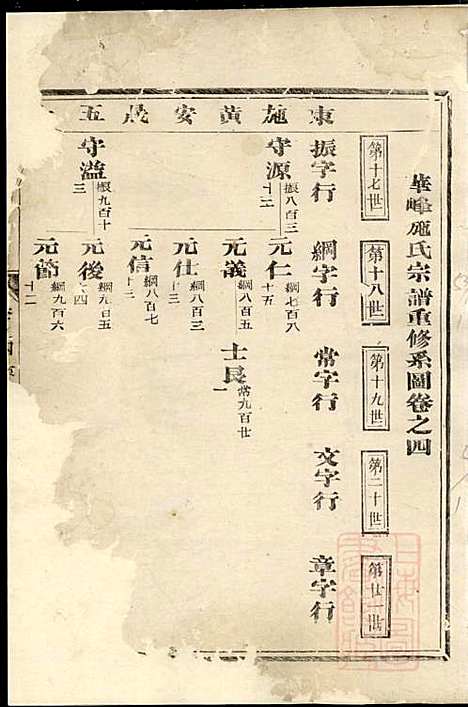 華峰施氏宗譜重修系圖卷之四
第十七世
第十八世
第十九世
第二十世
第廿一世
東施黃安晟五
振字行
綱字行
常字行
文字行
章字行
守源
振八百三十三
元仁
綱七百八十五
元義
綱八百五
士良
常九百廿一
元仕
綱八百三
元信
綱八百七
守溢
振九百十三
元後
元節
綱九百六十二